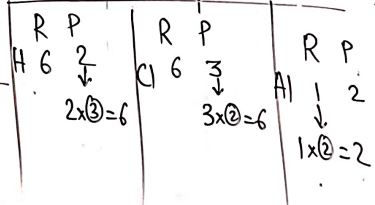 R P
H 6 2
↓
2x③=6
R P
Cl 6 3
↓
3x②=6
R P
Al 1 2
↓
1x②=2